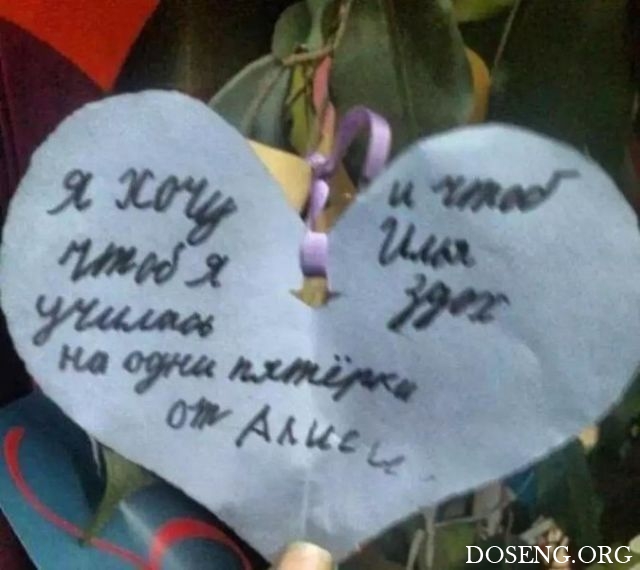 я хочу
чтоб я
училась
на одни пятёрки
от Алисы
и чтоб
Илья
здох
DOSENG.ORG